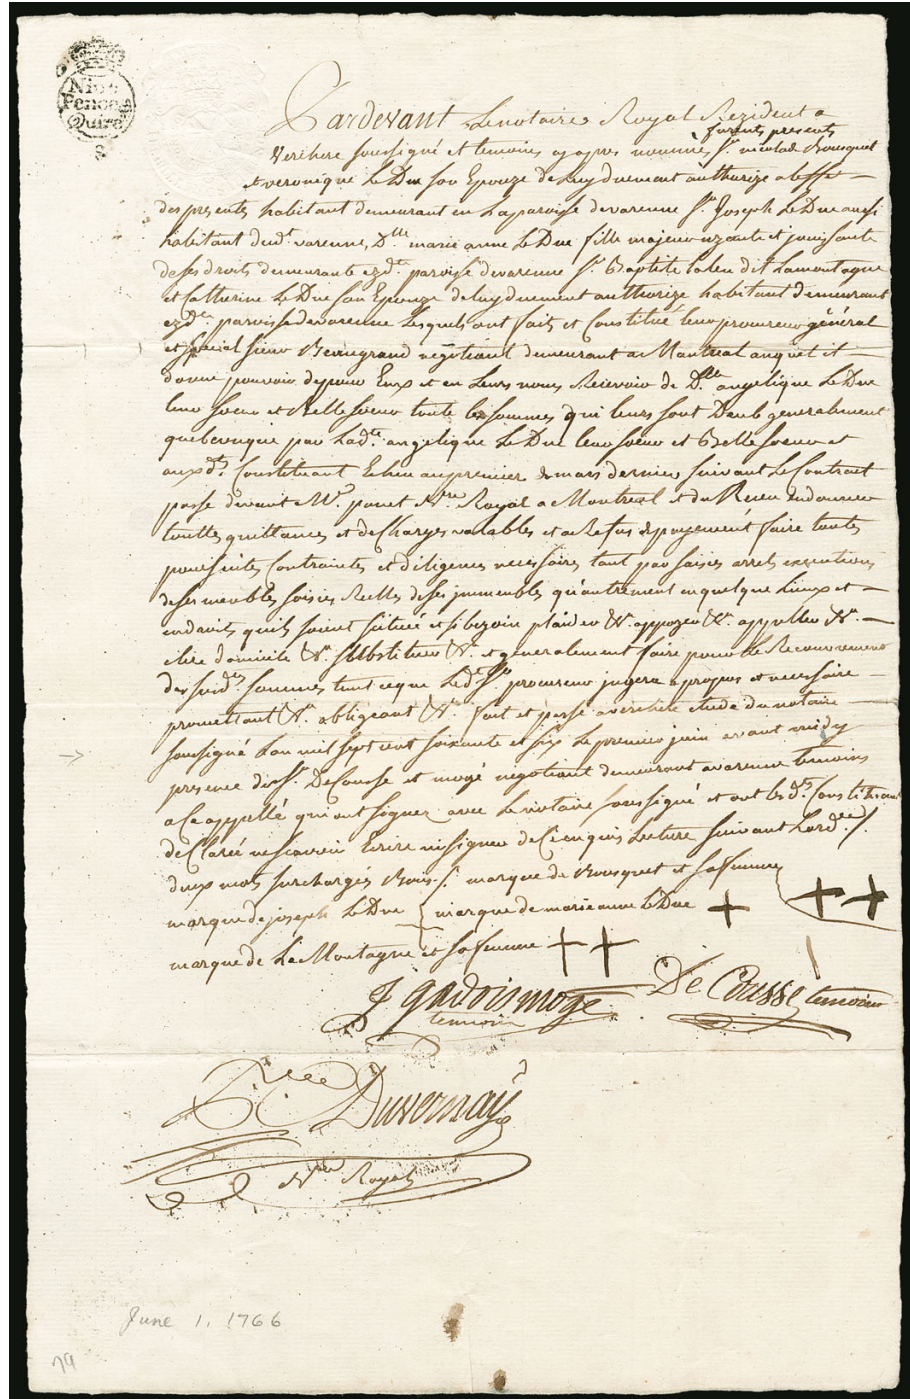 Nine
Pence
Quire
Pardevant Le notaire Royal Rezident a
furent presents
Verchere soussigné et temoins cy apres nommés Sr. nicolas Bousquet
et veronique Le Duc son Epouze de Luy duement authorize a l'effet
des presents habitant demeurant en La paroisse de varenne Sr. Joseph Le Duc aussi
habitant dudt. varenne, Dlle marie anne Le Duc fille majeur uzante et jouissante
de ses droits demeurante ezdte. paroisse de varenne Sr. Baptiste dit Lamontagne
et Catherine Le Duc son Epouze de Luy duement authorize habitant demeurant
ezdte. paroisse de varenne Lesquels ont fait et Constitué leur procureur général
et special sieur Beaugrand négotiant demeurant a Montreal auquel il
donne pouvoir de pour Eux et en Leurs noms Recevoir de Dlle angelique Le Duc
leur soeur et Belle soeur toute les sommes qui leurs sont Deub generalement
quelconque par Ladte. angelique Le Duc leur soeur et Belle soeur et
auxdts. Constituant Echeu au premier de mars dernier suivant Le Contract
passé devant Me. panet Nre. Royal a Montreal et du Receu en donner
touttes quittances et deCharges valables et a Refus de payement faire toutes
poursuites Contraintes et diligences necessaires tant par saisies arrets executions
de ses meubles saisies Reelles de ses immeubles qu'autrement en quelque Lieux et
endroits quils soient situéé et si bezoin plaider &a. oppozer &a. appeller &a.
elire domicile &a. substituer &a. et generalement faire pour le Recouvrement
des susdtes. sommes tout ce que Ledt. Sr. procureur jugera apropos et necessaire
promettant &a. obligeant &a. fait et passé a verchere etude du notaire
soussigné L'an mil sept cent soixante et six Le premier juin avant midy
presence de Sr. DeCousse et mogé negotiant demeurant a varenne temoins
a Ce appellé qui ont signer avec Le notaire soussigné et ont les dts. Constituant
deClaré ne scavoir Ecrire ni signer de Ce enquis Lecture suivant Lordce.
deux mots surchargés Bons marque de Bousquet et sa femme + +
marque de joseph Le Duc + marque de marie anne Le Duc +
marque de La Montagne et sa femme + +
J gadois mogé De Cousse temoin
temoin
Duvernay
Nre Royal
June 1, 1766